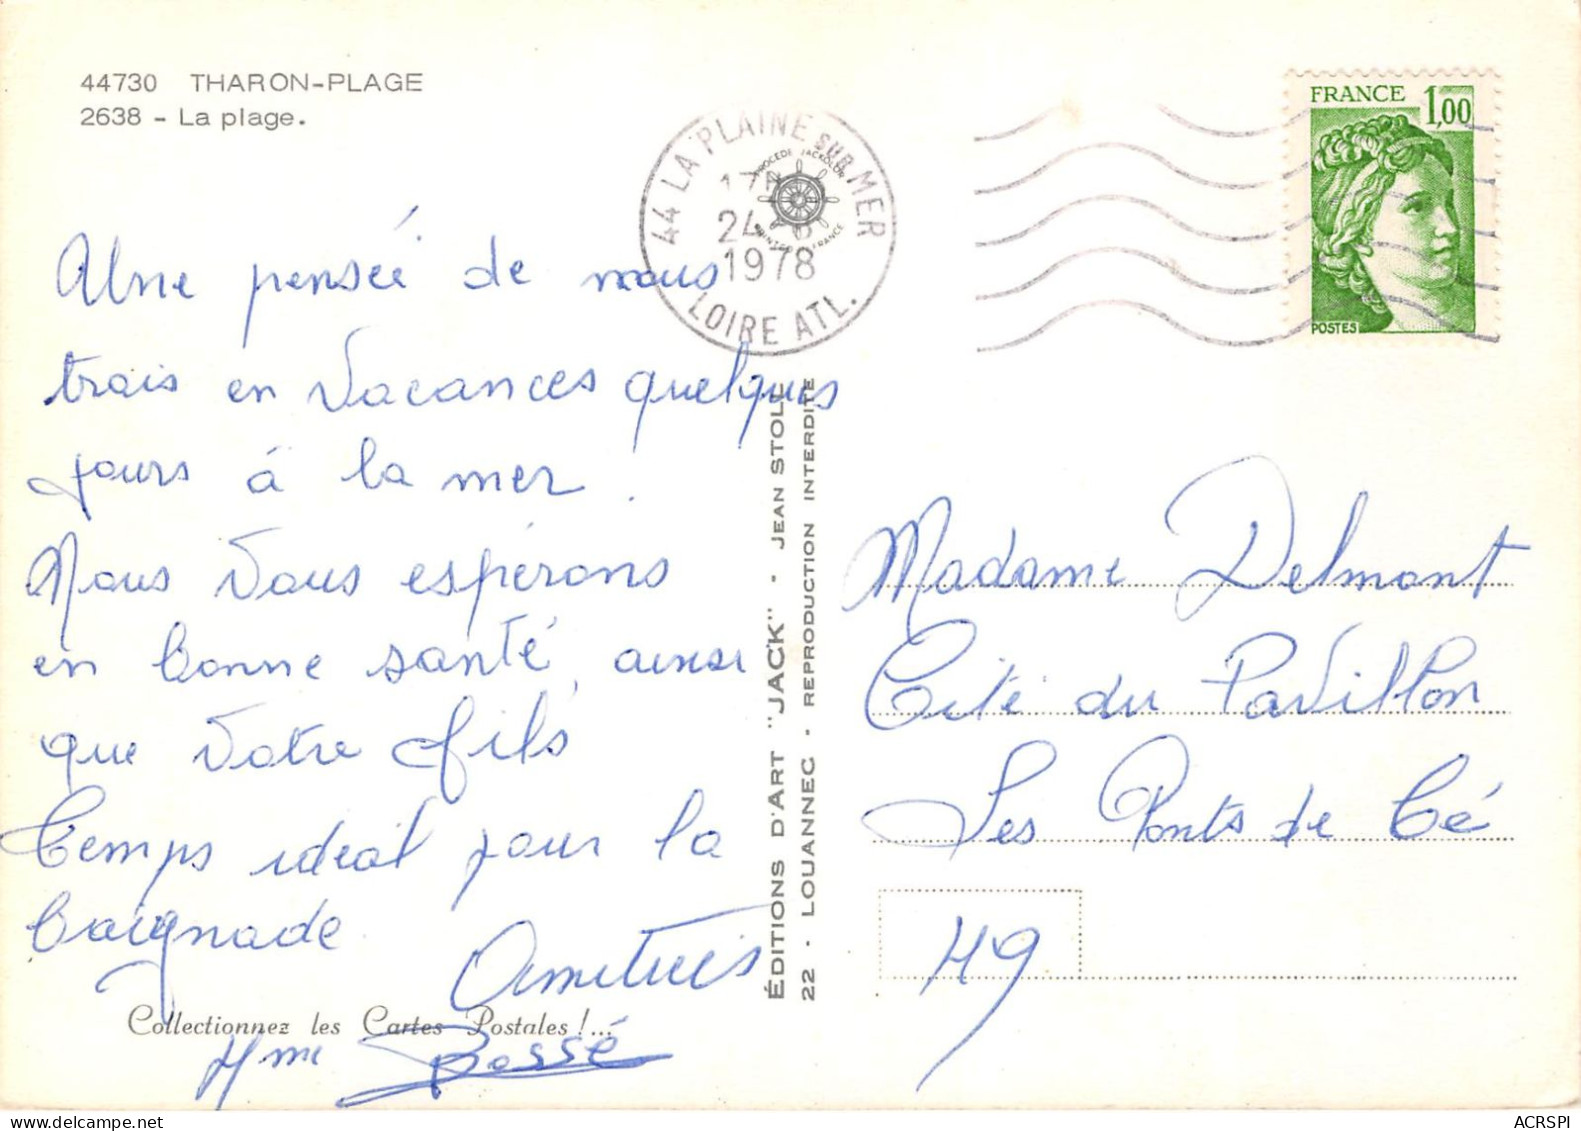 44730 THARON-PLAGE
2638 - La plage.
44 LA PLAINE SUR MER
24
1978
LOIRE ATL.
PROCEDE JACKOLOR
FRANCE
FRANCE 1,00
POSTES
Une pensée de nous
trois en Vacances quelques
jours à la mer.
Nous Vous espérons
en bonne santé, ainsi
que Votre fils
Temps idéal pour la
baignade
Amitiés
Mme Bossé
Collectionnez les Cartes Postales !...
ÉDITIONS D'ART "JACK" - JEAN STOLL
22 - LOUANNEC - REPRODUCTION INTERDITE
Madame Delmont
Cité du Pavillon
Les Ponts de Cé
49
ACRSPI